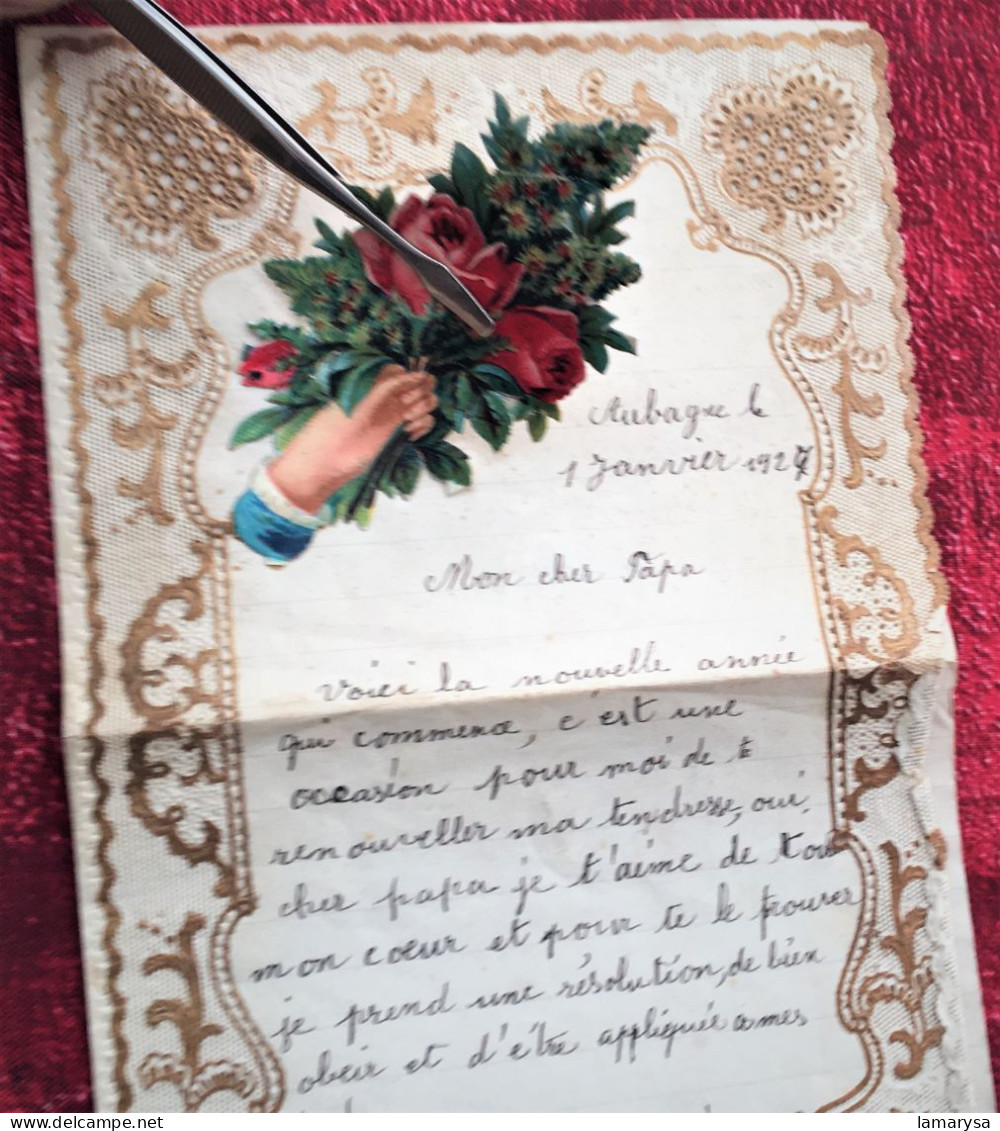 Aubagne le
1 Janvier 1927
Mon cher Papa
Voici la nouvelle année
qui commence, c'est une
occasion pour moi de te
renouveller ma tendresse, oui,
cher papa je t'aime de tout
mon coeur et pour te le prouver
je prend une résolution, de bien
obeir et d'être appliquée a mes
lamarysa